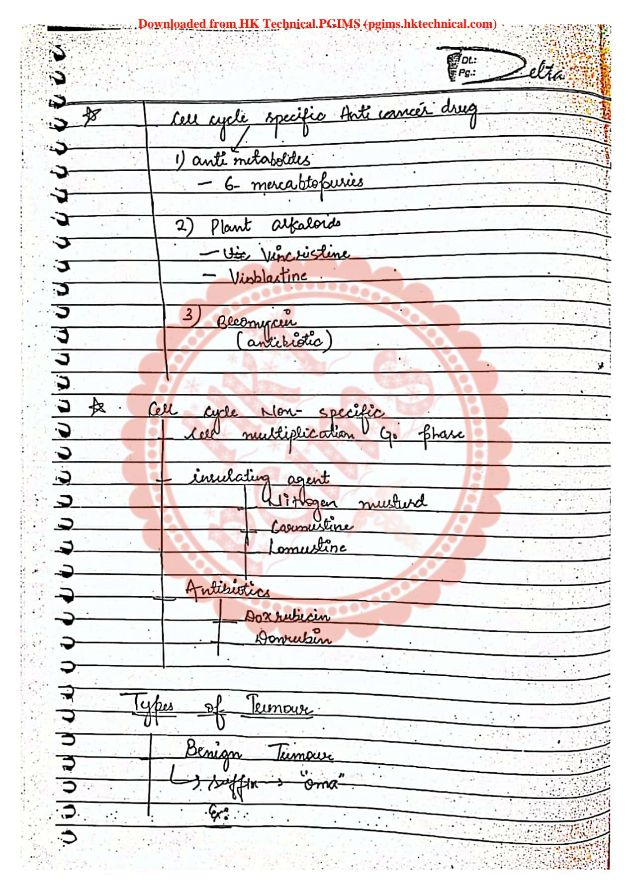 Downloaded from HK Technical.PGIMS (pgims.hktechnical.com)
Dt.:
Pg.:
Delta
Cell cycle specific Anti cancer drug
1) anti metaboldes
- 6- mercabtopuries
2) Plant alkaloids
- Vincristine
- Vinblastine
3) Beeomycin
(antibiotic)
Cell cycle Non- specific
- Cell multiplication G₀ phase
- insulating agent
Nitrogen musturd
Carmustine
Lomustine
- Antibiotics
Doxrubicin
Donrubin
Types of Tumour
- Benign Tumour
↳ suffix → "oma"
Ex: